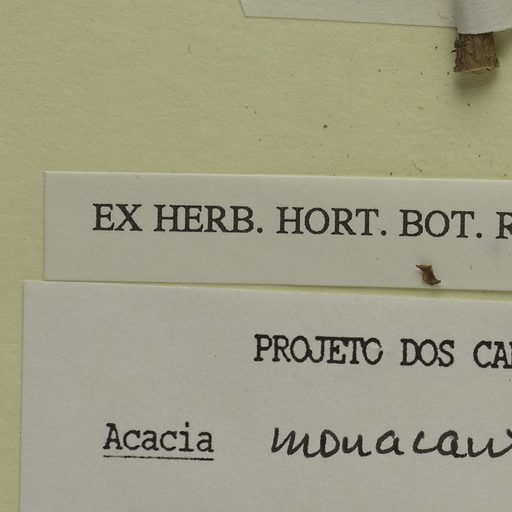 EX HERB. HORT. BOT. R
PROJETO DOS CA
Acacia monacan